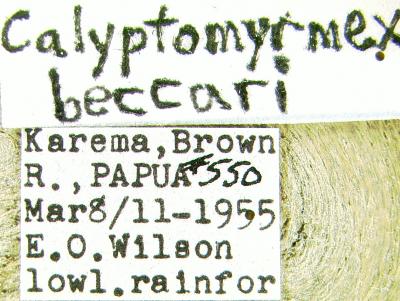 Calyptomyrmex
beccari
Karema, Brown
R., PAPUA #550
Mar8/11-1955
E.O.Wilson
lowl.rainfor